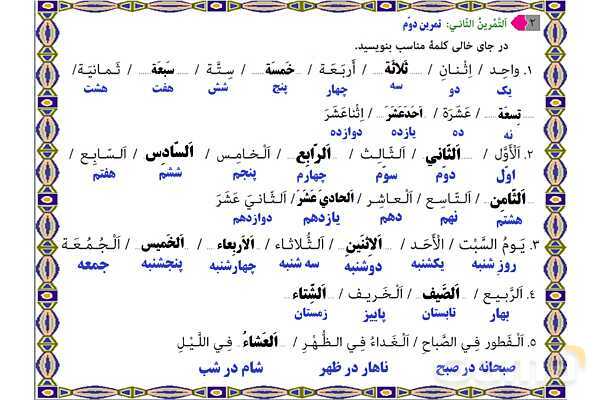 ۲ اَلتَّمْرينُ الثّاني: تمرین دوّم
در جای خالی کلمهٔ مناسب بنویسید.
۱. واحِد / اِثْنانِ / ثَلاثَة / أَربَعَة / خَمسَة / سِتَّة / سَبعَة / ثَمانيَة/
یک دو سه چهار پنج شش هفت هشت
تِسعَة / عَشَرَة / اَحَدَعَشَرَ / اِثناعَشَرَ
نه ده یازده دوازده
۲. اَلْأَوَّل / اَلثّاني / اَلثّالِث / اَلرّابِع / اَلْخامِس / اَلسّادِس / اَلسّابِع /
اوّل دوم سوّم چهارم پنجم ششم هفتم
اَلثّامِن / اَلتّاسِع / اَلْعاشِر / اَلحاديَ عَشَرَ / اَلثّانيَ عَشَرَ
هشتم نهم دهم یازدهم دوازدهم
۳. يَومُ السَّبْت / اَلْأَحَد / اَلاِثنَينِ / اَلثُّلاثاء / اَلاَربِعاء / اَلخَميس / اَلْجُمُعَة
روز شنبه یکشنبه دوشنبه سه شنبه چهارشنبه پنجشنبه جمعه
۴. اَلرَّبيع / اَلصَّيف / اَلْخَريف / اَلشِّتاء
بهار تابستان پاییز زمستان
۵. اَلْفَطور فِي الصَّباحِ / اَلْغَداءُ فِي الظُّهْرِ / اَلعَشاءُ فِي اللَّيْلِ
صبحانه در صبح ناهار در ظهر شام در شب